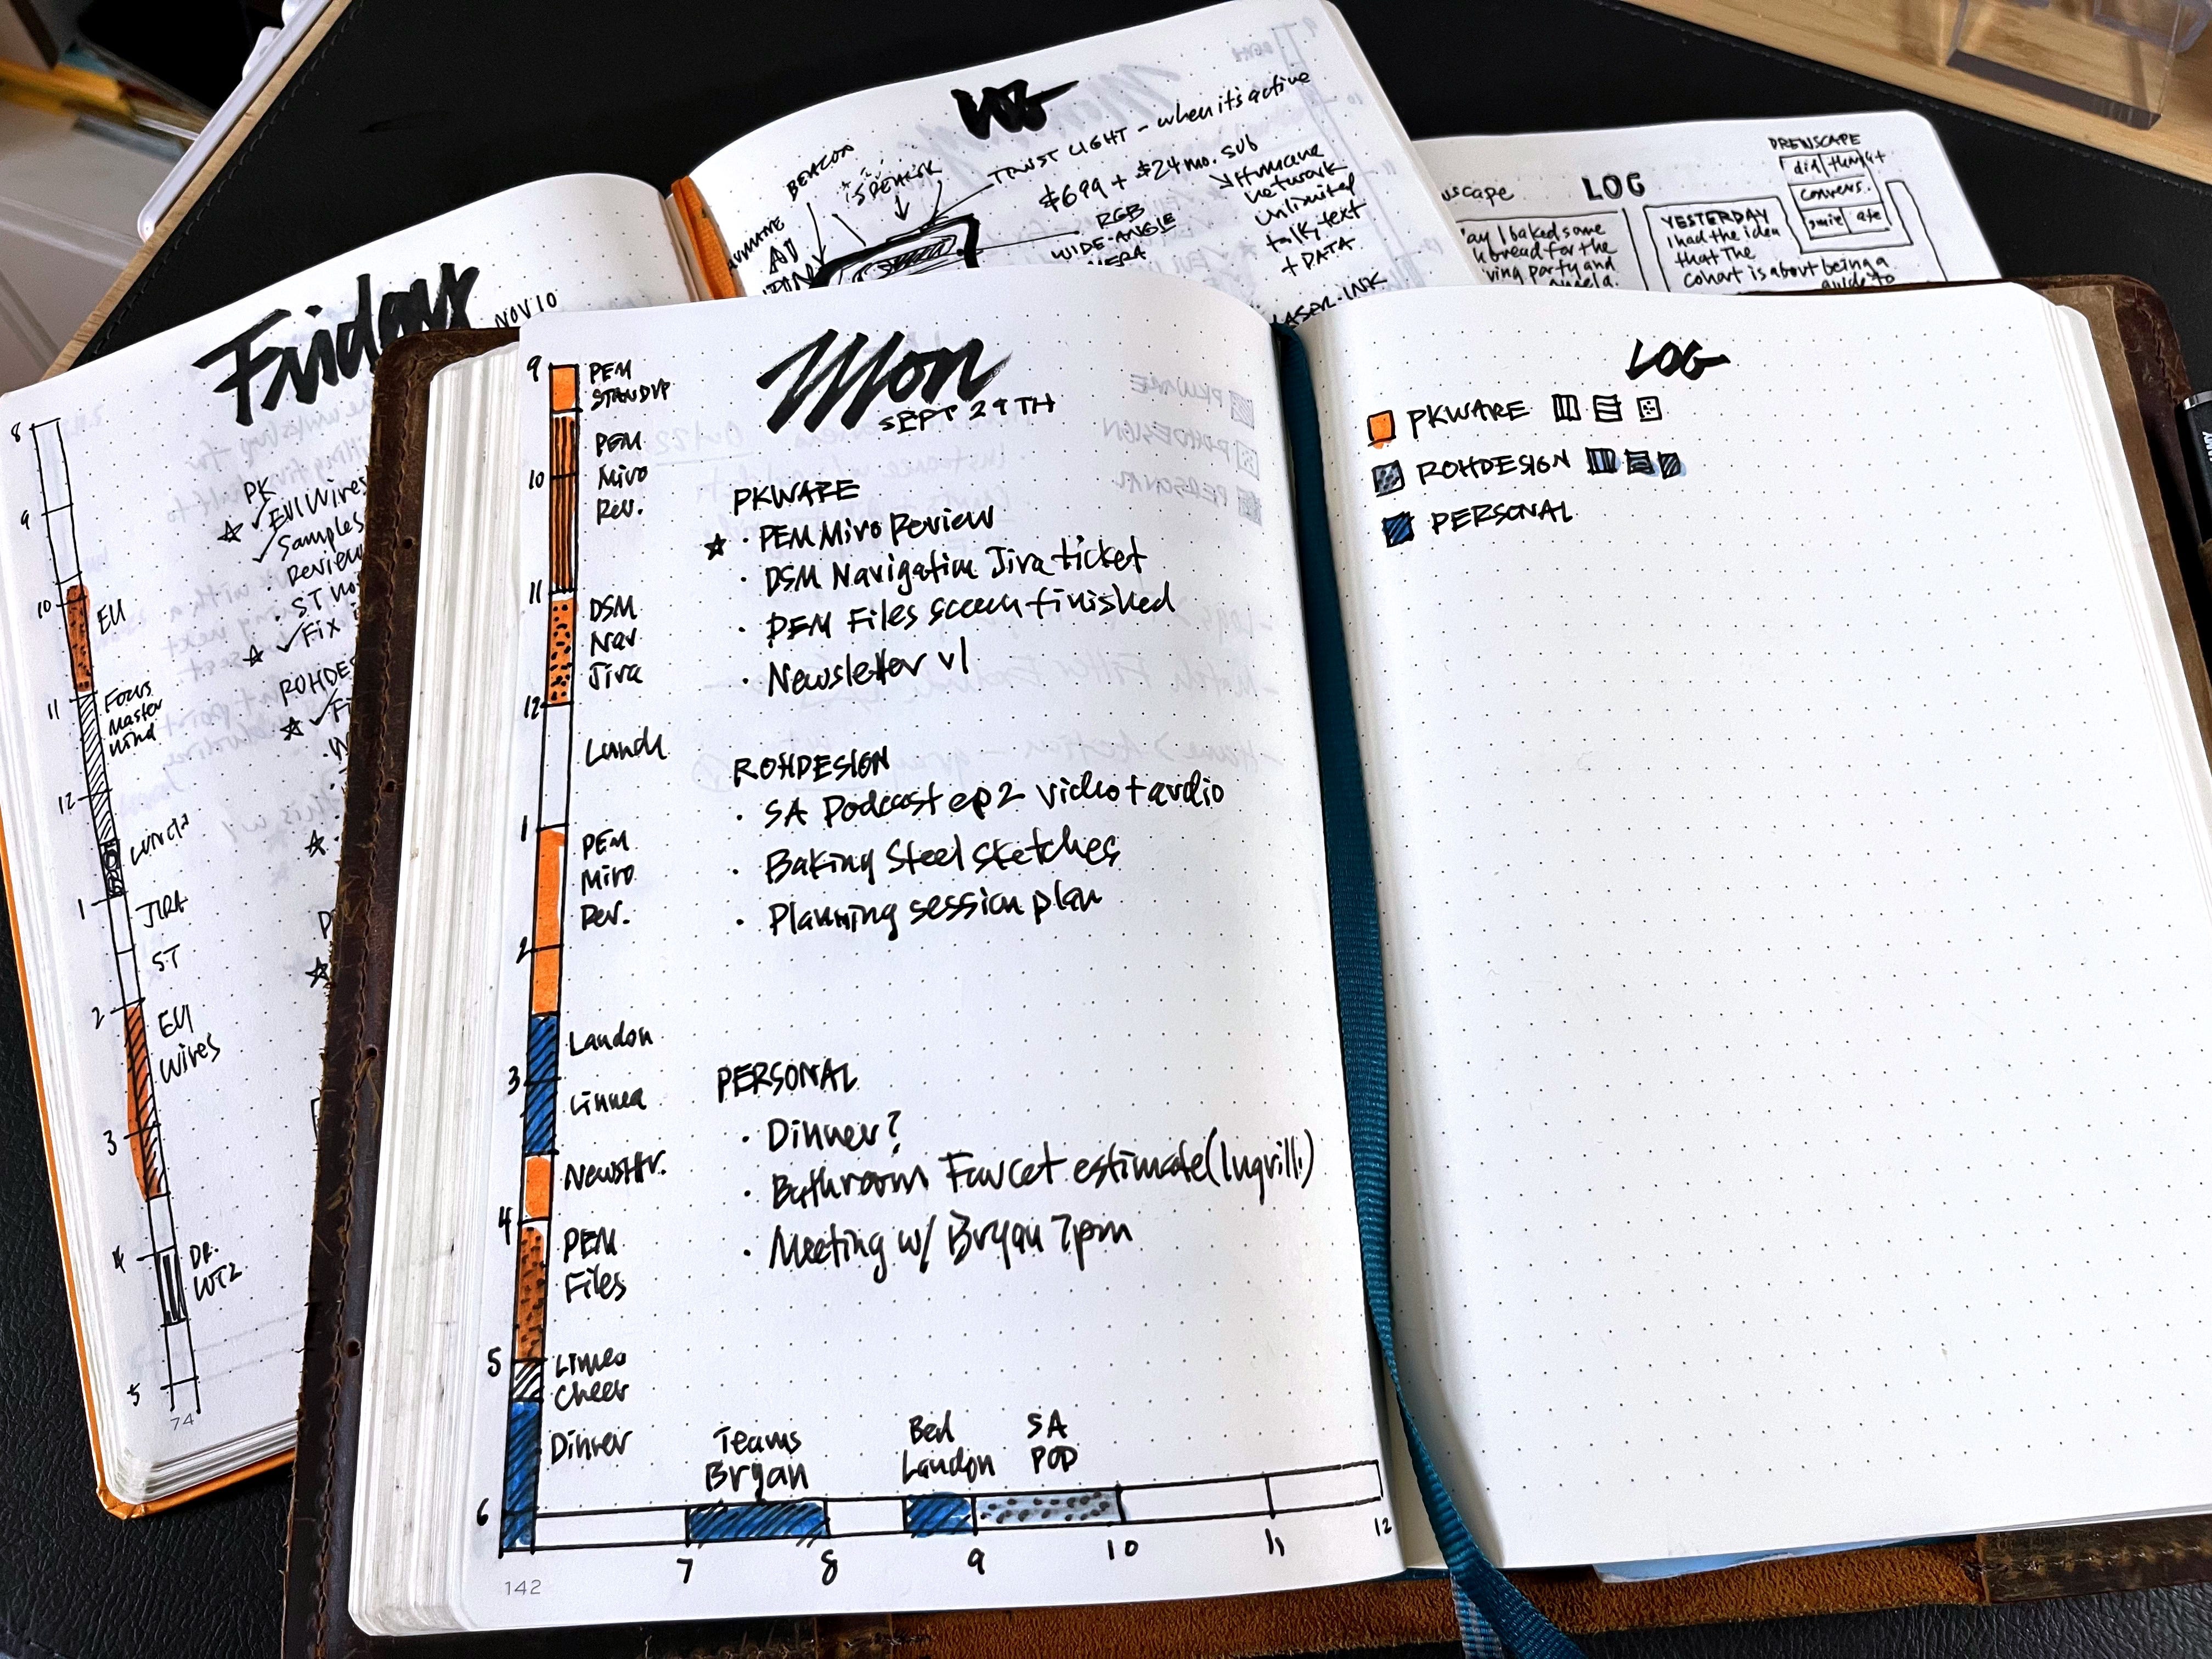 Friday
NOV 10
8
9
10
EU
11
Focus
Master
Mind
12
Lunch
1
JIRA
ST
2
EU
Wires
3
4
DR.
5
74
PK
✓ EUI Wires
✓ Samples
Review
☆ ✓ Fix
LOG
BEACON
SPEAKER
TRUST LIGHT - when its active
$699 + $24 mo. sub
Humane
network
unlimited
talk, text
+ DATA
RGB
WIDE-ANGLE
HUMANE
AI
PIN
LASER-INK
LOG
DREWSCAPE
convers.
I baked some
bread for the
party and
YESTERDAY
I had the idea
that the
cohort is about being a
guide to
Mon
SEPT 29TH
9
PEM
STANDUP
PEM
10
Miro
Rev.
11
DSM
Nav
Jira
12
Lunch
1
PEM
Miro
Rev.
2
Landon
3
Linnea
NewsHr.
4
PEM
Files
5
Linea
Cheer
Dinner
6
PKWARE
☆ · PEM Miro Review
· DSM Navigation Jira ticket
· PEM Files screen finished
· Newsletter v1
ROHDESIGN
· SA Podcast ep2 video + audio
· Baking Steel sketches
· Planning session plan
PERSONAL
· Dinner?
· Bathroom Faucet estimate
· Meeting w/ Bryan 7pm
Teams
Bryan
Bed
Landon
SA
POD
7 8 9 10 11 12
142
LOG
PKWARE
ROHDESIGN
PERSONAL